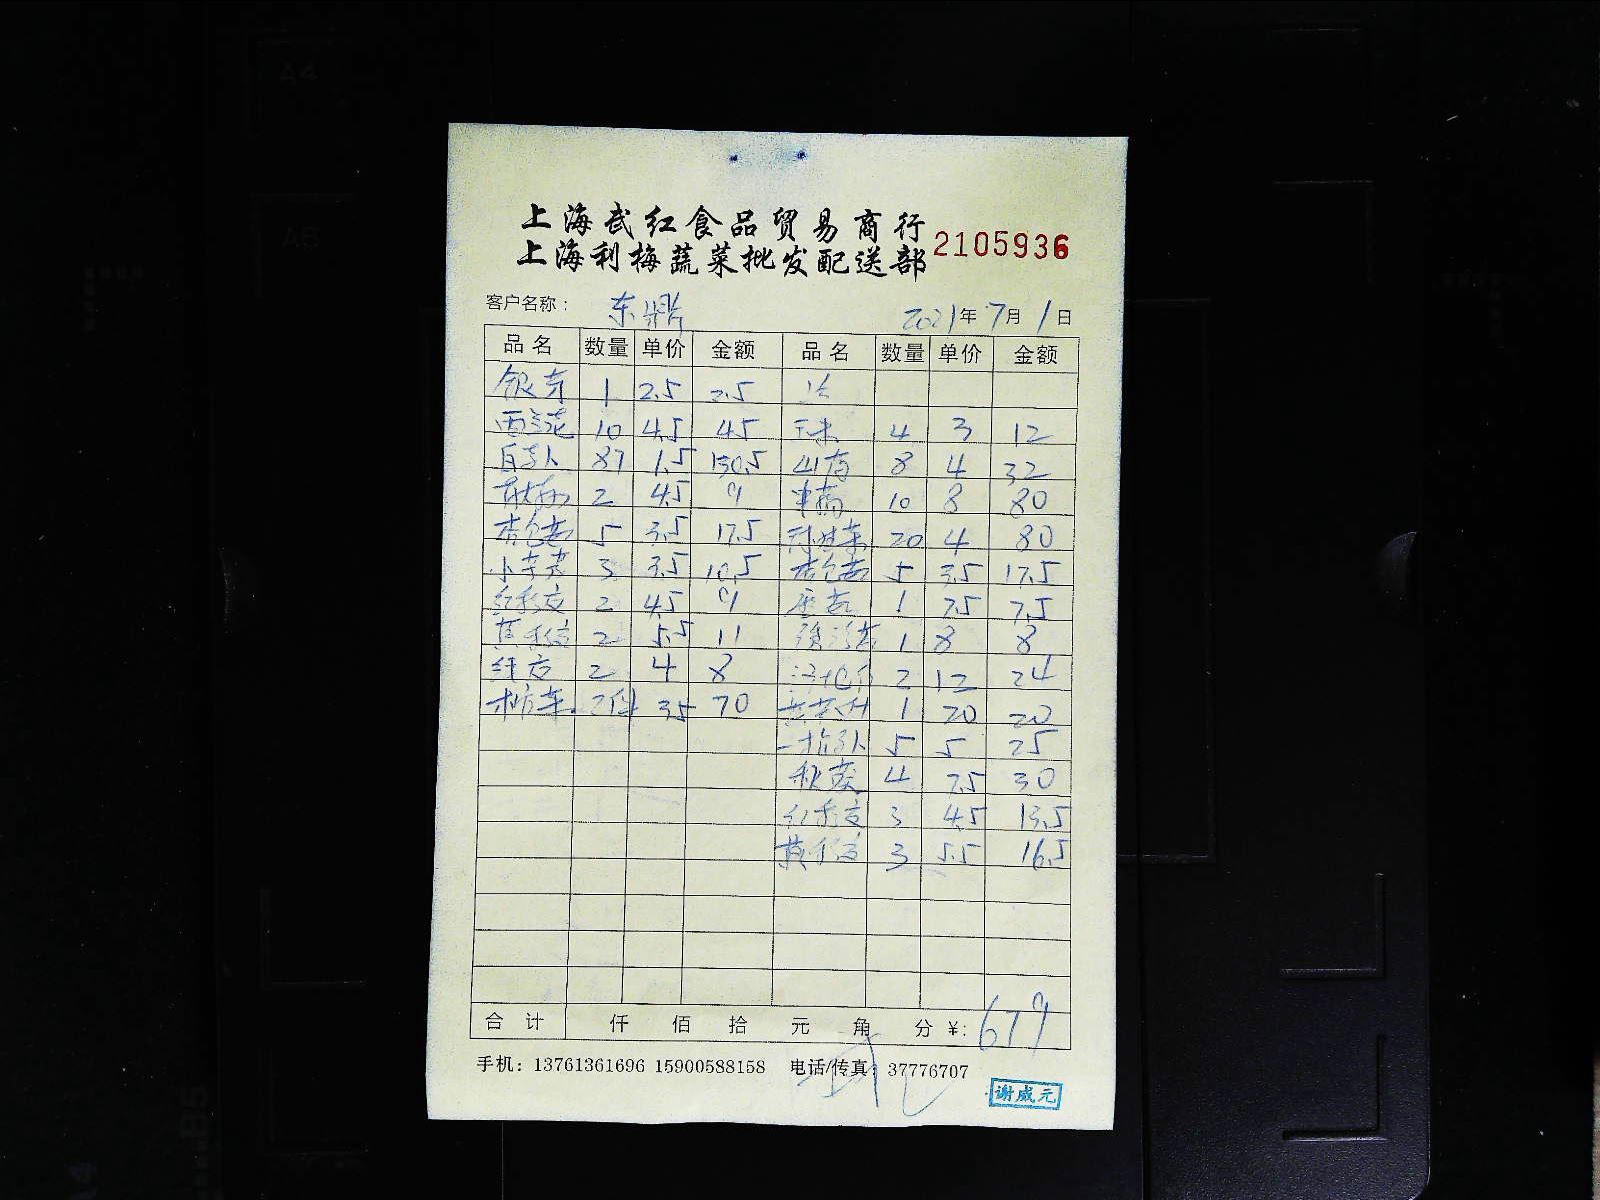 上海武红食品贸易商行
上海利梅蔬菜批发配送部 2105936
客户名称： 东鼎 2021年7月1日
品名 数量 单价 金额 品名 数量 单价 金额
银芽 1 2.5 2.5
西兰花 10 4.5 45 玉米 4 3 12
87 1.5 130.5 山药 8 4 32
2 4.5 9 10 8 80
杏包菇 5 3.5 17.5 20 4 80
3 3.5 10.5 杏包菇 5 3.5 17.5
红彩交 2 4.5 9 1 7.5 7.5
黄彩交 2 5.5 11 1 8 8
2 4 8 2 12 24
2件 35 70 1 20 20
5 5 25
秋葵 4 7.5 30
红彩交 3 4.5 13.5
黄彩交 3 5.5 16.5
合计 仟 佰 拾 元 角 分 ¥: 679
手机：13761361696 15900588158 电话/传真：37776707
谢威元